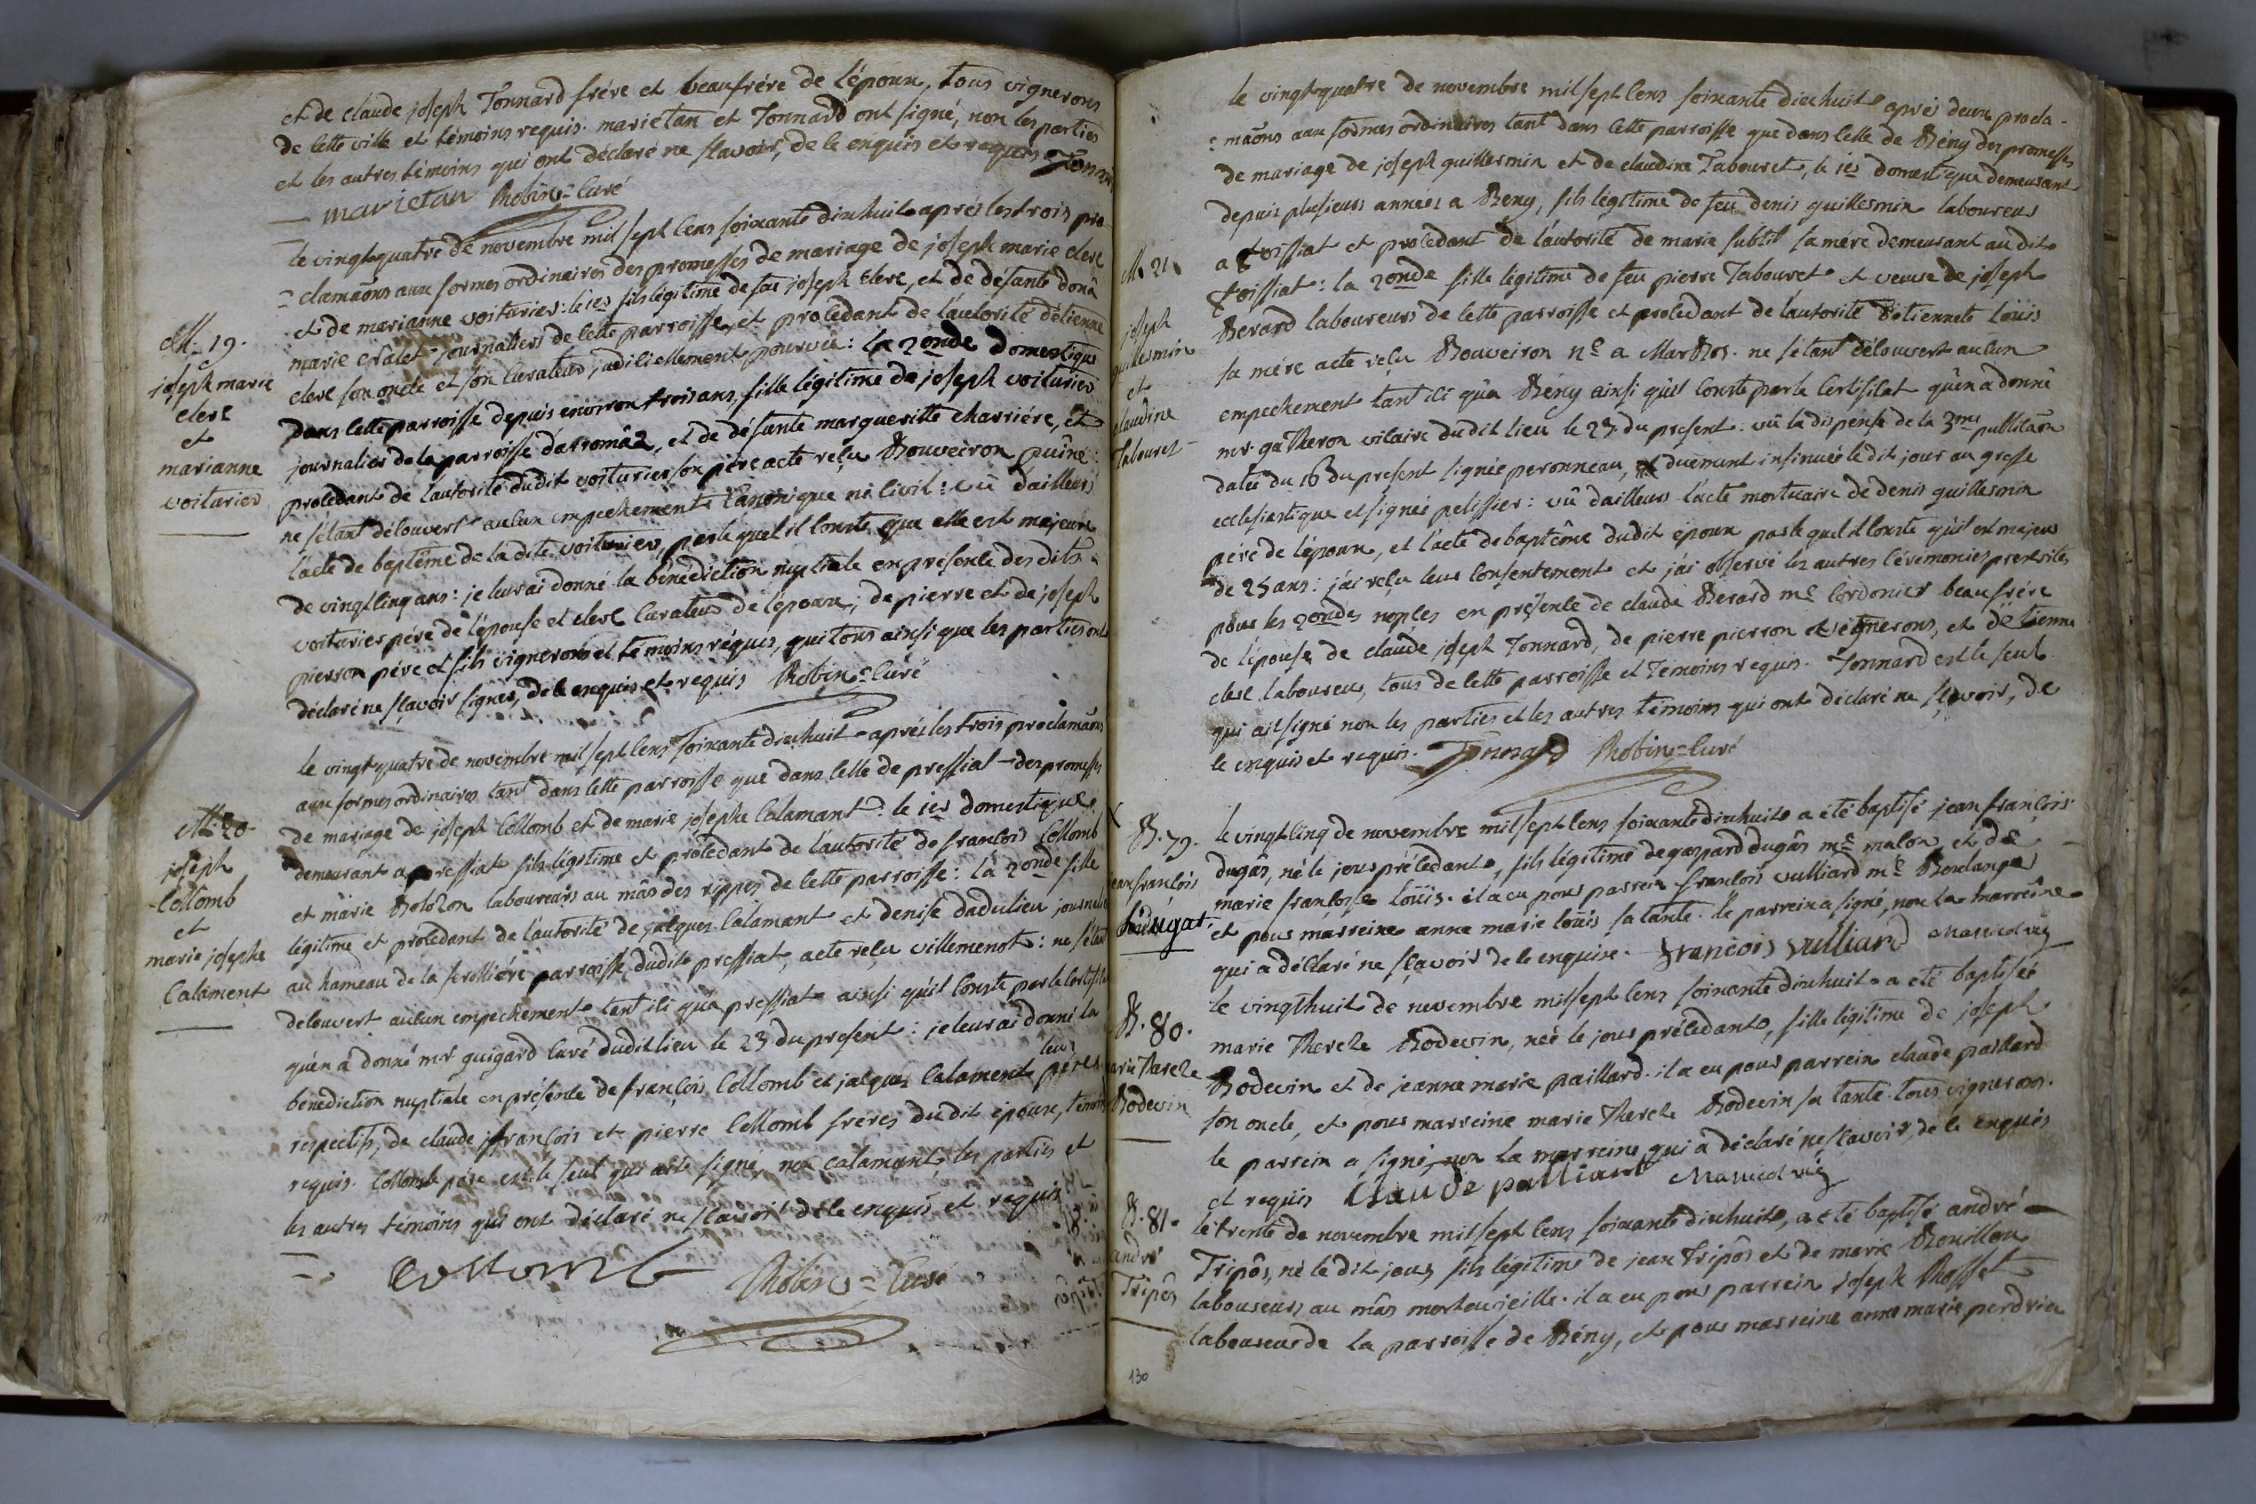 et de claude joseph Tonnard frére et beaufrére de l'époux, tous vignerons
de cette ville et témoins requis. marietan et Tonnard ont signé, non les parties
et les autres témoins qui ont déclaré ne sçavoir, de ce enquis et requis Tonnard
marietan Robin=Curé
M. 19.
joseph marie
clerc
et
marianne
voiturier
le vingtquatre de novembre mil sept cens soixante dixhuit aprés les trois pro
=clamaons aux formes ordinaires des promesses de mariage de joseph marie clerc
et de marianne voiturier: le 1er fils légitime de feu joseph clerc, et de défante
marie chalet journaliers de cette parroisse, et procédant de l'autorité d'etienne
clerc son oncle et son curateur judiciellement pourvû: la 2onde domestique
dans cette parroisse depuis environ trois ans, fille légitime de joseph voiturier
journalier de la parroisse d'arromâz, et de défante margueritte charriére, et
procédant de l'autorité dudit voiturier son père acte reçu Bouveiron puîné:
ne s'étant découvert aucun empechement canonique ni civil: vû d'ailleurs
l'acte de baptême de la dite voiturier par lequel il conste que elle est majeure
de vingt cinq ans: je leur ai donné la bénédiction nuptiale en présence des dits
voiturier pére de l'épouse et clerc curateur de l'epoux; de pierre et de joseph
pierron pére et fils vignerons et témoins réquis, qui tous ainsi que les parties ont
déclaré ne sçavoir signer, de ce enquis et requis Robin=Curé
M. 20
joseph
Collomb
et
marie josephe
Calament
le vingtquatre de novembre mil sept cens soixante dixhuit aprés les trois proclamaons
aux formes ordinaires tant dans cette parroisse que dans celle de pressiat des promesses
de mariage de joseph Collomb et de marie josephe Calamant: le 1er domestique
demeurant a pressiat fils légitime et procédant de l'autorité de francois Collomb
et marie Bolozon laboureurs au mâs des rippes de cette parroisse: la 2onde fille
légitime et procédant de l'autorité de jacques Calamant et denise dadulieu
au hameau de la parroisse dudit pressiat, acte reçu villemenot: ne s'étant
découvert aucun empechement tant ici qu'a pressiat ainsi qu'il conste par le
qu'en a donné mr guigard curé dudit lieu le 23 du present: je leur ai donné la
bénédiction nuptiale en présence de françois Collomb et jacques Calament leurs péres
respectifs, de claude françois et pierre Collomb fréres du dit époux, témoins
requis. Collomb pére est le seul qui aite signé, non calamant les parties et
les autres témoins qui ont déclaré ne sçavoir de ce enquis et requis
Collomb Robin=Curé
M. 21
joseph
guillermin
et
claudine
Tabouret
le vingtquatre de novembre mil sept cens soixante dixhuit aprés deux procla-
=maons aux formes ordinaires tant dans cette parroisse que dans celle de Bény des promesses
de mariage de joseph guillermin et de claudine Tabouret, le 1er domestique demeurant
depuis plusieurs années a Beny, fils légitime de feu denis guillermin laboureur
a Foissiat et procédant de l'autorité de marie subtil sa mére demeurant au dit
foissiat: la 2onde fille légitime de feu pierre Tabouret et veuve de joseph
Berard laboureurs de cette parroisse et procédant de l'autorité d'etiennete Loüis
sa mére acte reçu Bouveiron ne a Marboz. ne s'étant découvert aucun
empechement tant ici qu'a Bény ainsi qu'il conste par le certificat qu'en a donné
mr. vicaire dudit lieu le 23 du present: vû la dispense de la 3me publicaon
datée du 16 du present signée peronneau, et duement insinuée le dit jour au greffe
ecclésiastique et signée pelissier: vû d'ailleurs l'acte mortuaire de denis guillermin
pére de l'époux, et l'acte de baptême du dit époux par le quel il conste qu'il est majeur
de 25 ans: j'ai reçu leur consentement et j'ai observé les autres cérémonies prescrites
pour les 2ondes noples en présence de claude Berard me cordonier beaufrére
de l'épouse, de claude joseph Tonnard, de pierre pierron vignerons, et d'etienne
clerc laboureur, tous de cette parroisse et témoins requis. Tonnard est le seul
qui ait signé non les parties et les autres témoins qui ont déclaré ne sçavoir, de
ce enquis et requis. Tonnard Robin=Curé
B. 79.
jean françois
dugas
le vingtcinq de novembre mil sept cens soixante dixhuit a été baptisé jean françois
dugâs, né le jour précédant, fils légitime de gaspard dugâs me maçon, et de
marie françoise Loüis. il a eu pour parrein francois vulliard me Boulanger
et pour marreine anne marie loüis sa tante. le parrein a signé, non la marreine
qui a déclaré ne sçavoir de ce enquise. françois vulliard
B. 80.
marie Thereze
Bodevin
le vingthuit de novembre mil sept cens soixante dixhuit a été baptisée
marie Thereze Bodevin, née le jour précédant, fille légitime de joseph
Bodevin et de jeanne marie paillard. il a eu pour parrein claude paillard
son oncle, et pour marreine marie Thereze Bodevin sa tante. tous vignerons.
le parrein a signé, non la marreine qui a déclaré ne sçavoir, de ce enquis
et requis Claude palliard
B. 81.
andré
Tripôs
le trente de novembre mil sept cens soixante dixhuit, a été baptisé andré
Tripôs, né le dit jour, fils légitime de jean Tripôs et de marie Bouillon
laboureurs au mâs il a eu pour parrein joseph Rosset
laboureur de la parroisse de Bény, et pour marreine anne marie perdrix
130